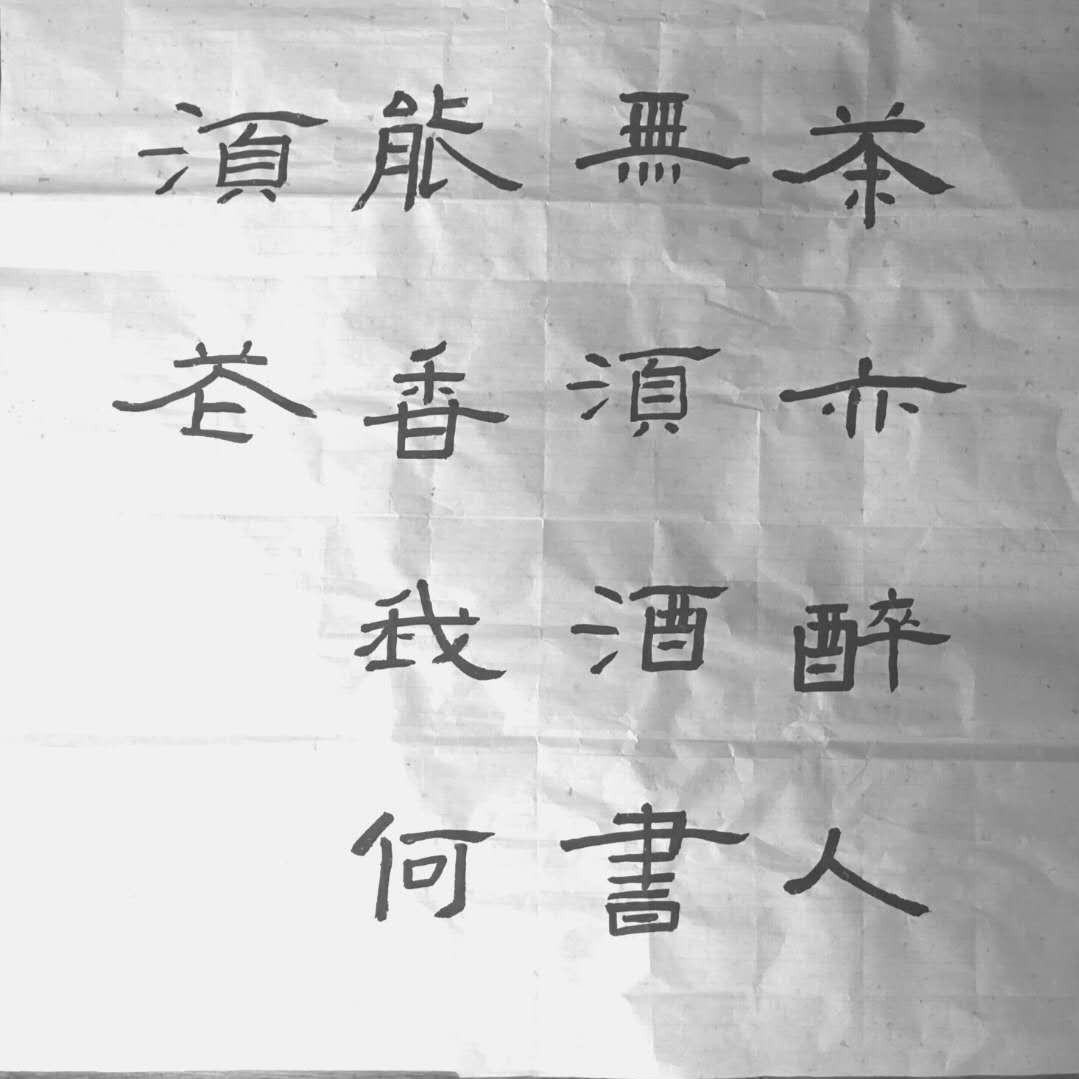 茶亦醉人
無湏酒書
能香我何
湏花